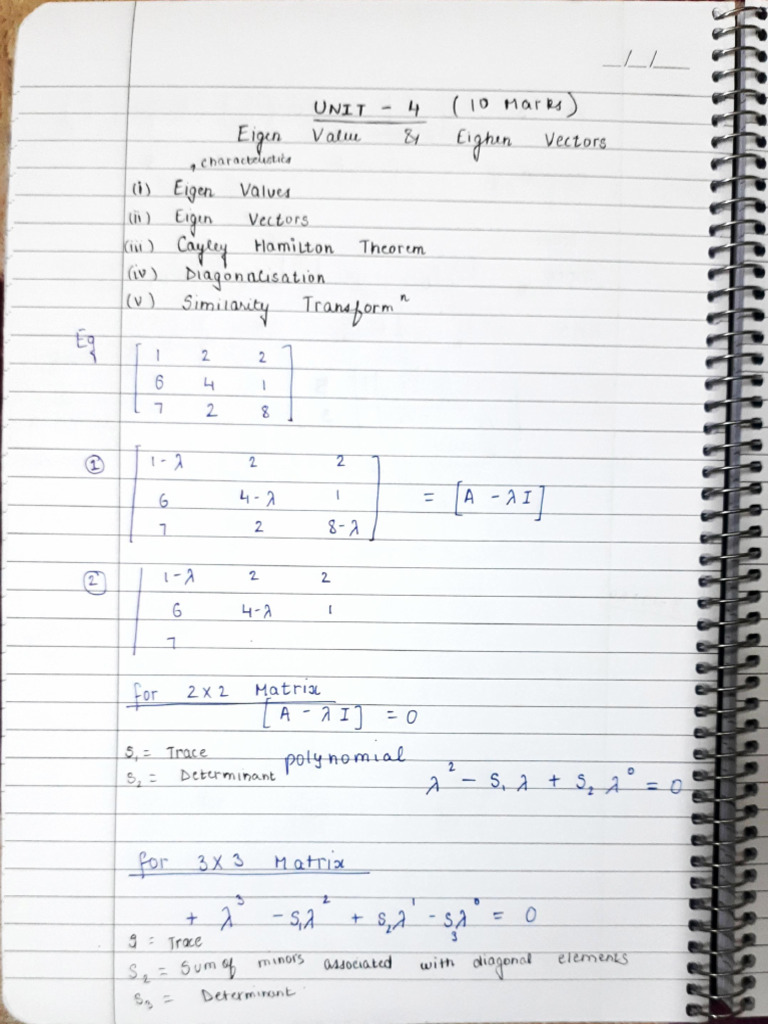 _/_/_
UNIT - 4 (10 Marks)
Eigen Value & Eighen Vectors
, characteristics
(i) Eigen Values
(ii) Eigen Vectors
(iii) Cayley Hamilton Theorem
(iv) Diagonalisation
(v) Similarity Transformⁿ
Eg
[ 1 2 2
6 4 1
7 2 8 ]
① [ 1-λ 2 2
6 4-λ 1 = [A - λI]
7 2 8-λ ]
② | 1-λ 2 2
6 4-λ 1
7
for 2×2 Matrix
[A - λI] = 0
S₁ = Trace polynomial
S₂ = Determinant λ² - S₁λ + S₂λ⁰ = 0
for 3×3 Matrix
+ λ³ - S₁λ² + S₂λ¹ - S₃λ⁰ = 0
= Trace
S₂ = Sum of minors associated with diagonal elements
S₃ = Determinant